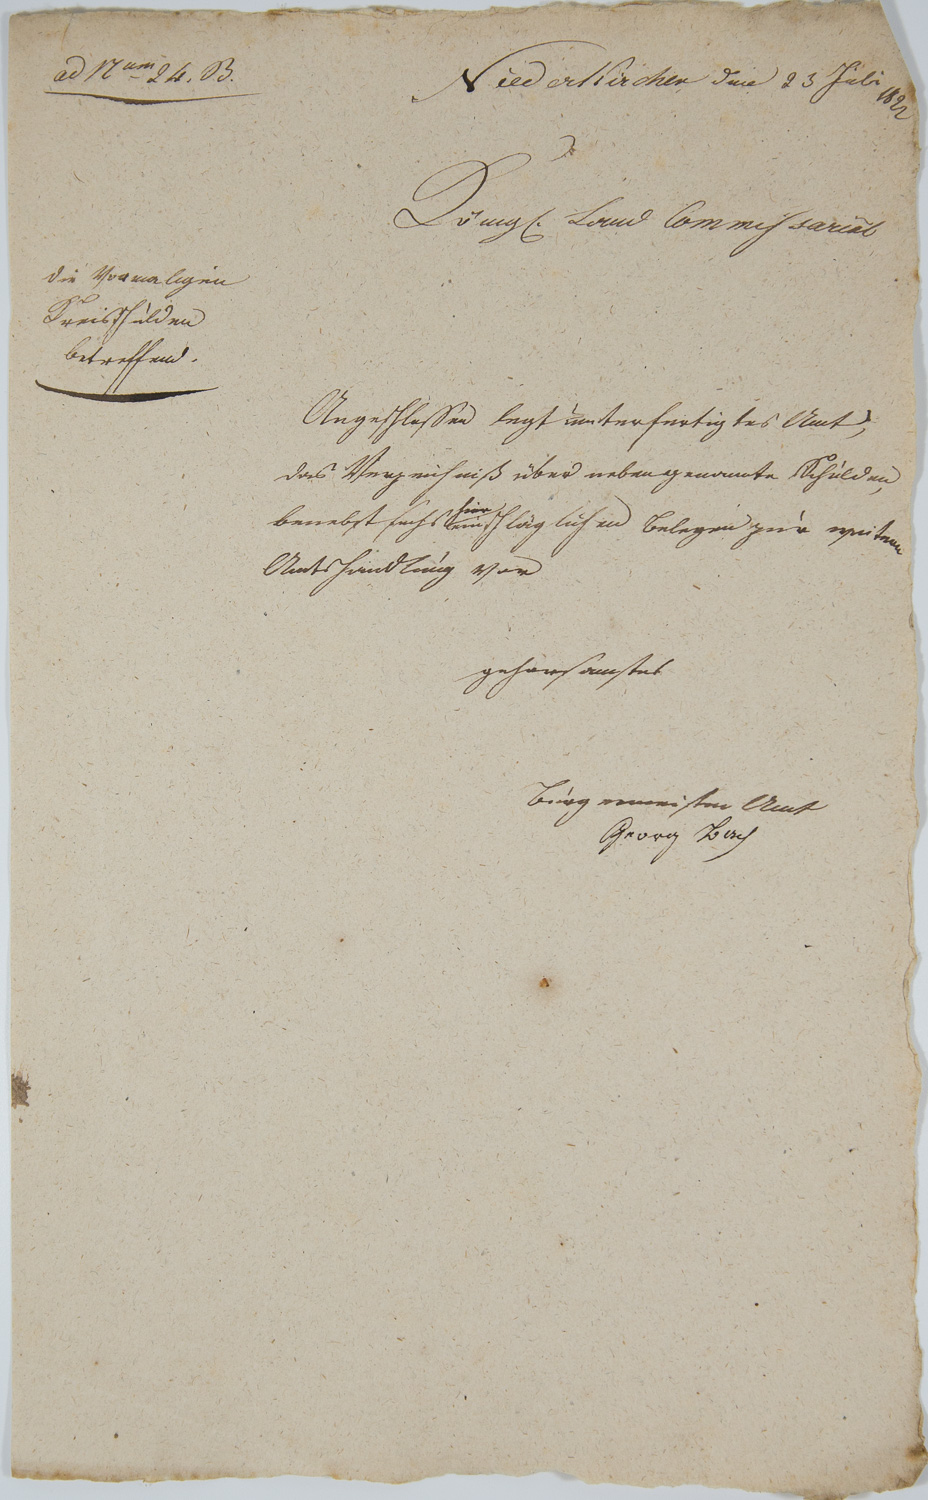 ad Num 24. B.
Niederkirchen den 23 Juli 1822
Königl. Land Commissariat
die Vormaligen
Kreisschulden
betreffend.
Angeschlossen legt unterfertigtes Amt,
das Verzeichniß über nebengenannte Schulden,
benebst sechs hier einschläglichen Belegen zur weitern
Amtshandlung vor
gehorsamstes
Bürgermeister Amt
Georg Bach